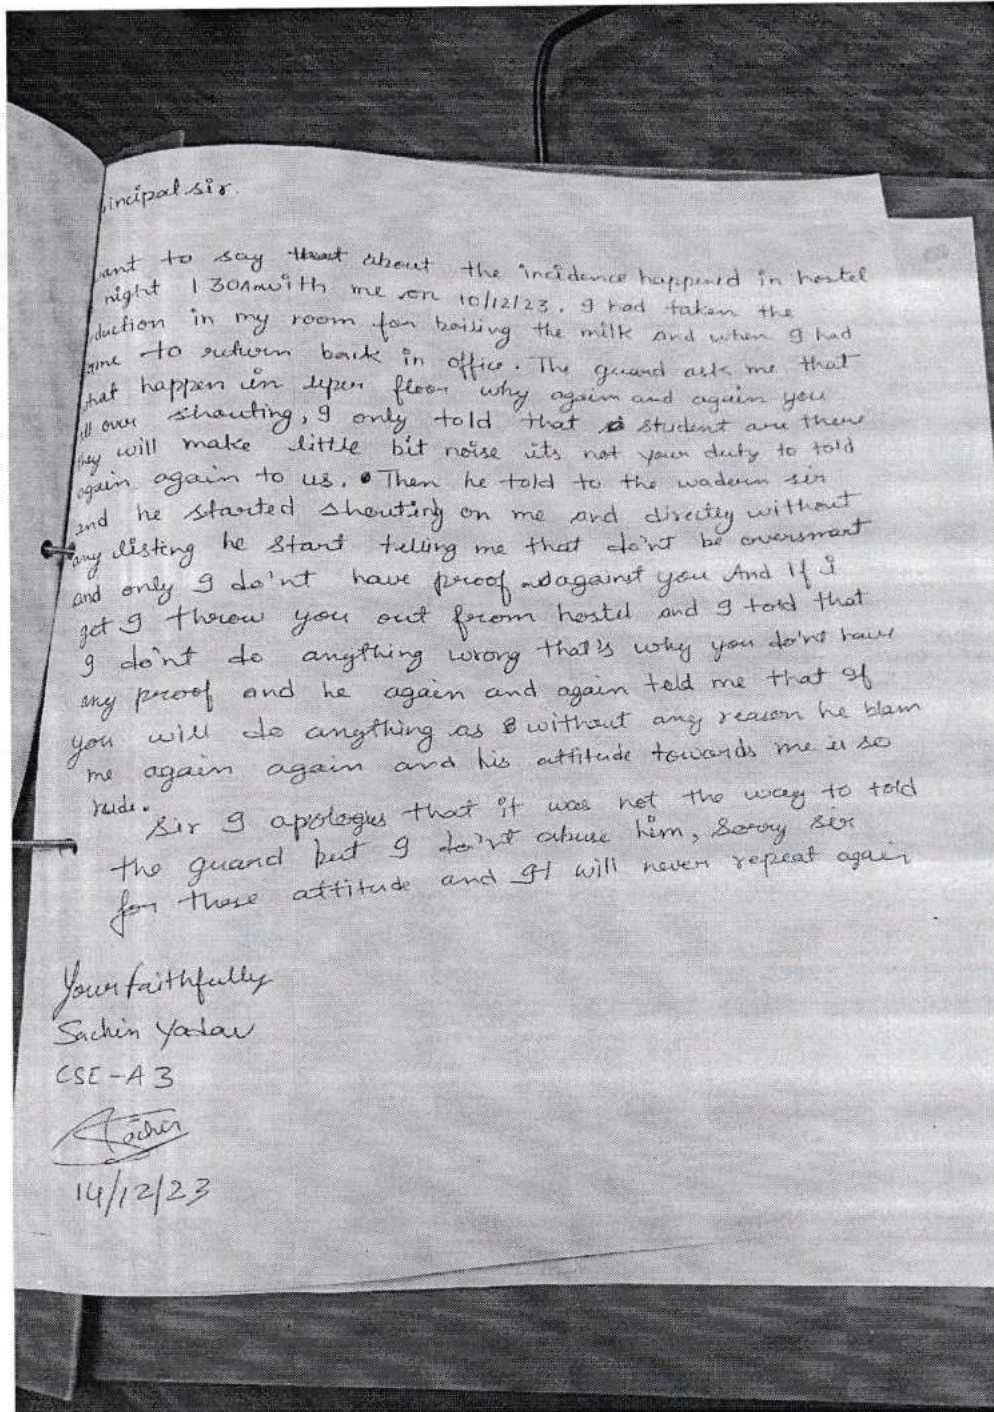 incipal sir.
ant to say that about the incidence happened in hostel
night 1 30Am with me on 10/12/23. I had taken the
duction in my room for boiling the milk and when I had
ame to return back in office. The guard ask me that
hat happen in uper floor why again and again you
all over shouting, I only told that student are there
hey will make little bit noise its not your duty to told
again again to us. Then he told to the wadern sir
and he started shouting on me and directly without
any listing he start telling me that do'nt be oversmart
and only I do'nt have proof against you And if i
get I throw you out from hostel and I told that
I do'nt do anything wrong that's why you do'nt have
any proof and he again and again told me that If
you will do anything as without any reason he blam
me again again and his attitude towards me is so
rude.
Sir I apologies that it was not the way to told
the guard but I do'nt abuse him, Sorry sir
for these attitude and I will never repeat again
Your faithfully
Sachin Yadav
CSE-A3
Sachin
14/12/23